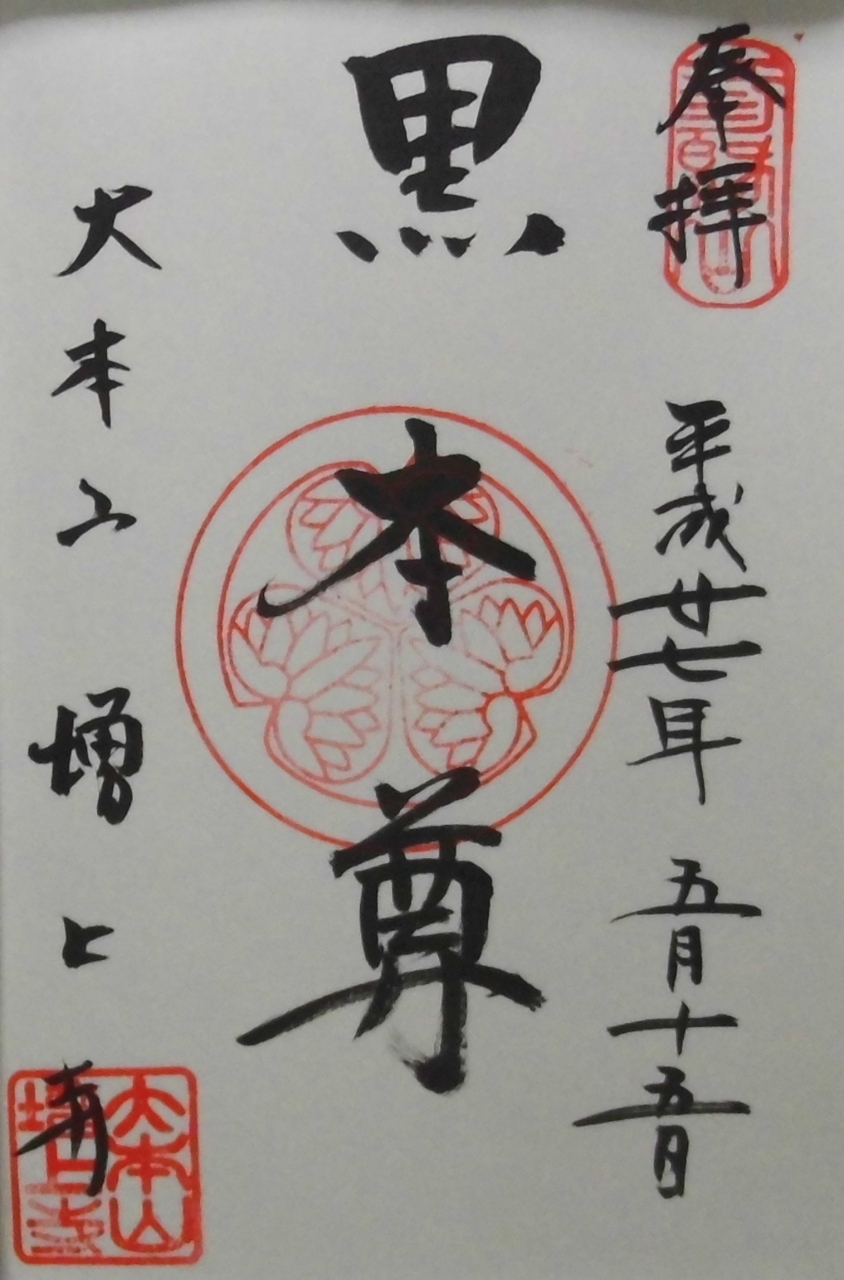 奉拝
平成廿七年 五月十五日
黒本尊
大本山 増上寺
大本山
増上寺